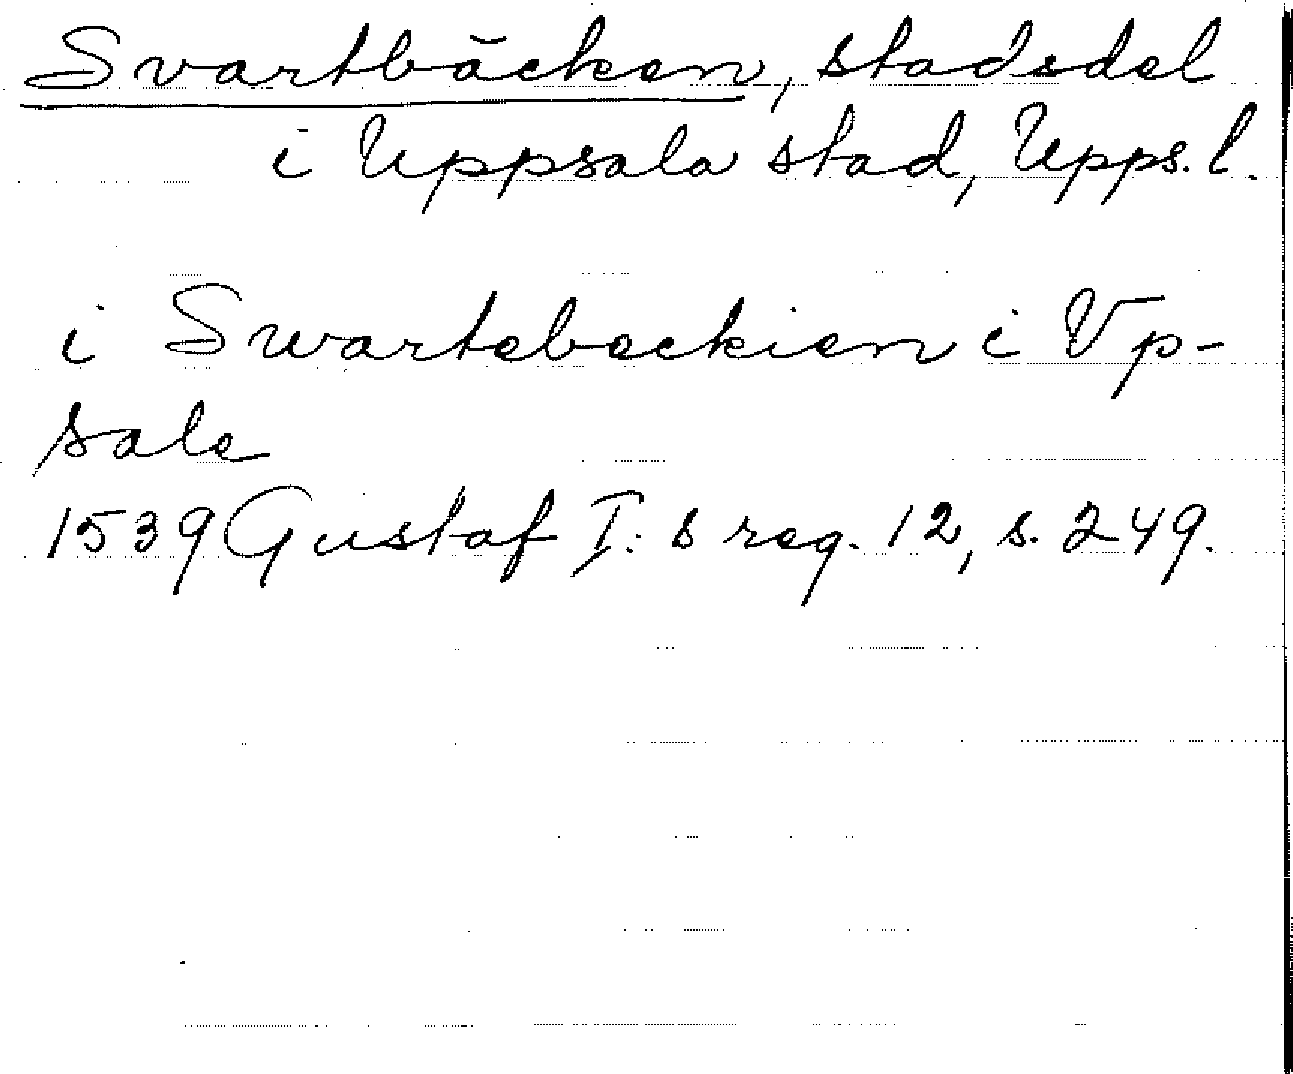 Svartbäcken, stadsdel
i Uppsala stad, Upps. l.
i Swartebeckien i Vp-
sale
1539 Gustaf I:s reg. 12, s. 249.